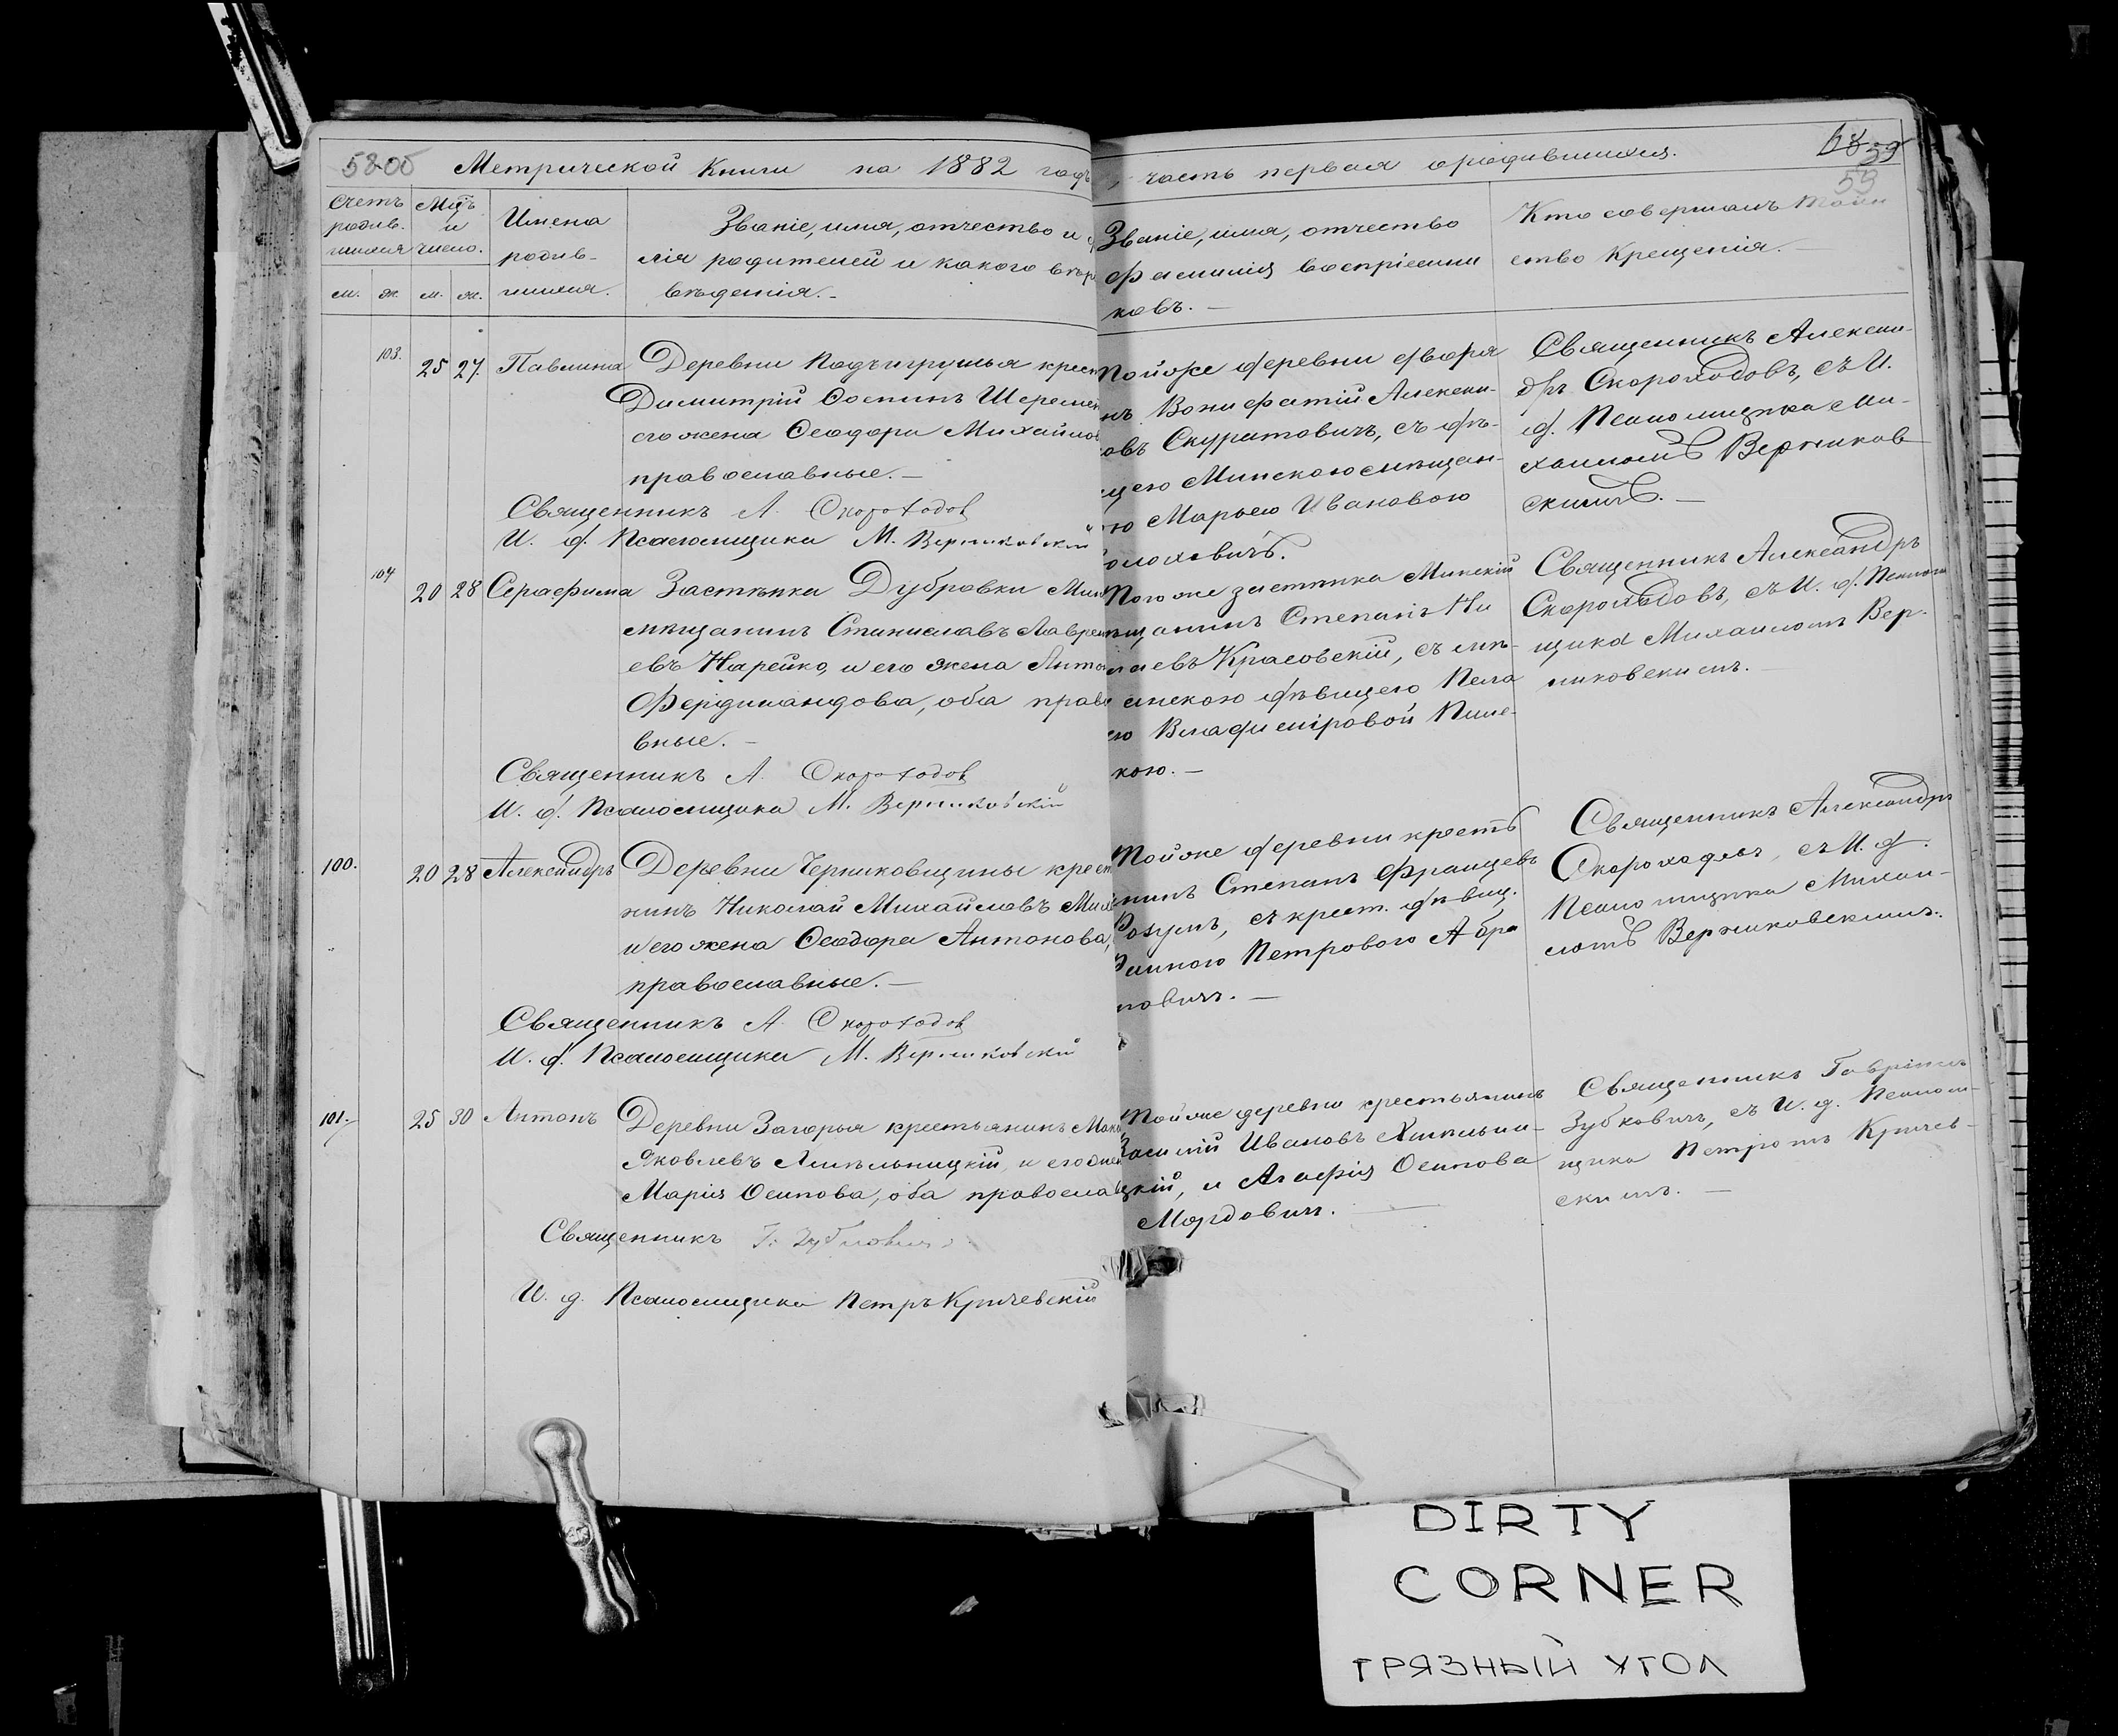 58об Метрической Книги на 1882 годъ, часть первая о родившихся.
59
59
Счетъ родив-шихся
м. ж.
Мцъ и число.
м. ж.
Имена
родив-
шихся.
Званіе, имя, отчество и
лія родителей и какого вѣро
вѣденія.-
Званіе, имя, отчество
фамилія воспріемни
ковъ. —
Кто совершалъ Таин
ство Крещенія. —
103. 25 27. Павлина
Деревни Подъигрушья крест
Димитрій Осипъ Шереме
его жена Ѳеодора Михайлов
православные. —
Священникъ А. Скороходов
И. д. Псаломщика М. Верниковскій
Тойже деревни дворя
нъ Вонифатій Алексан-
овъ Скуратовичъ, съ дѣ-
цею Минскою мѣщан-
ю Марьею Ивановою
олоховичъ.
Священникъ Алексан-
дръ Скороходовъ, съ И.
д. Псаломщика Ми-
хаиломъ Верников
скимъ. —
104 20 28 Серафима
Застѣнка Дубровки Мин
мѣщанинъ Станиславъ Лаврен
евъ Нарейко, и его жена Анто
Фердинандова, оба право
вные. —
Священникъ А. Скороходов
И. д. Псаломщика М. Верниковскій
Того же застѣнка Минскій
мѣщанинъ Степанъ Ни
лаевъ Красовскій, съ мѣ-
инскою дѣвицею Пела
ею Владиміровой Пиле-
кою. —
Священникъ Александръ
Скороходовъ, съ И. д. Псалом
щика Михаиломъ Вер-
никовскимъ. —
100. 20 28 Александръ
Деревни Черниковщины крест
нинъ Николай Михайловъ Мих
и его жена Ѳеодора Антонова,
православные. —
Священникъ А. Скороходов
И. д. Псаломщика М. Верниковскій
Тойже деревни кресть
нинъ Степанъ Францевъ
Розумъ, съ крест. дѣвиц.
Анною Петровою Абра
мовичъ. —
Священникъ Александръ
Скороходовъ, съ И. д.
Псаломщика Михаи-
ломъ Верниковскимъ.
101. 25 30 Антонъ
Деревни Загорья крестьянинъ Мак
Яковлевъ Хмѣльницкій, и его жен
Марія Осипова, оба правосла
Священникъ Г. Зубковичъ
И. д. Псаломщика Петръ Кричевскій
Тойже деревни крестьянинъ
Василій Ивановъ Хмѣльни-
цкій, и Агафія Осипова
Мордовичъ. —
Священникъ Гавріилъ
Зубковичъ, съ И. д. Псалом-
щика Петромъ Кричев-
скимъ. —
DIRTY
CORNER
ГРЯЗНЫЙ УГОЛ